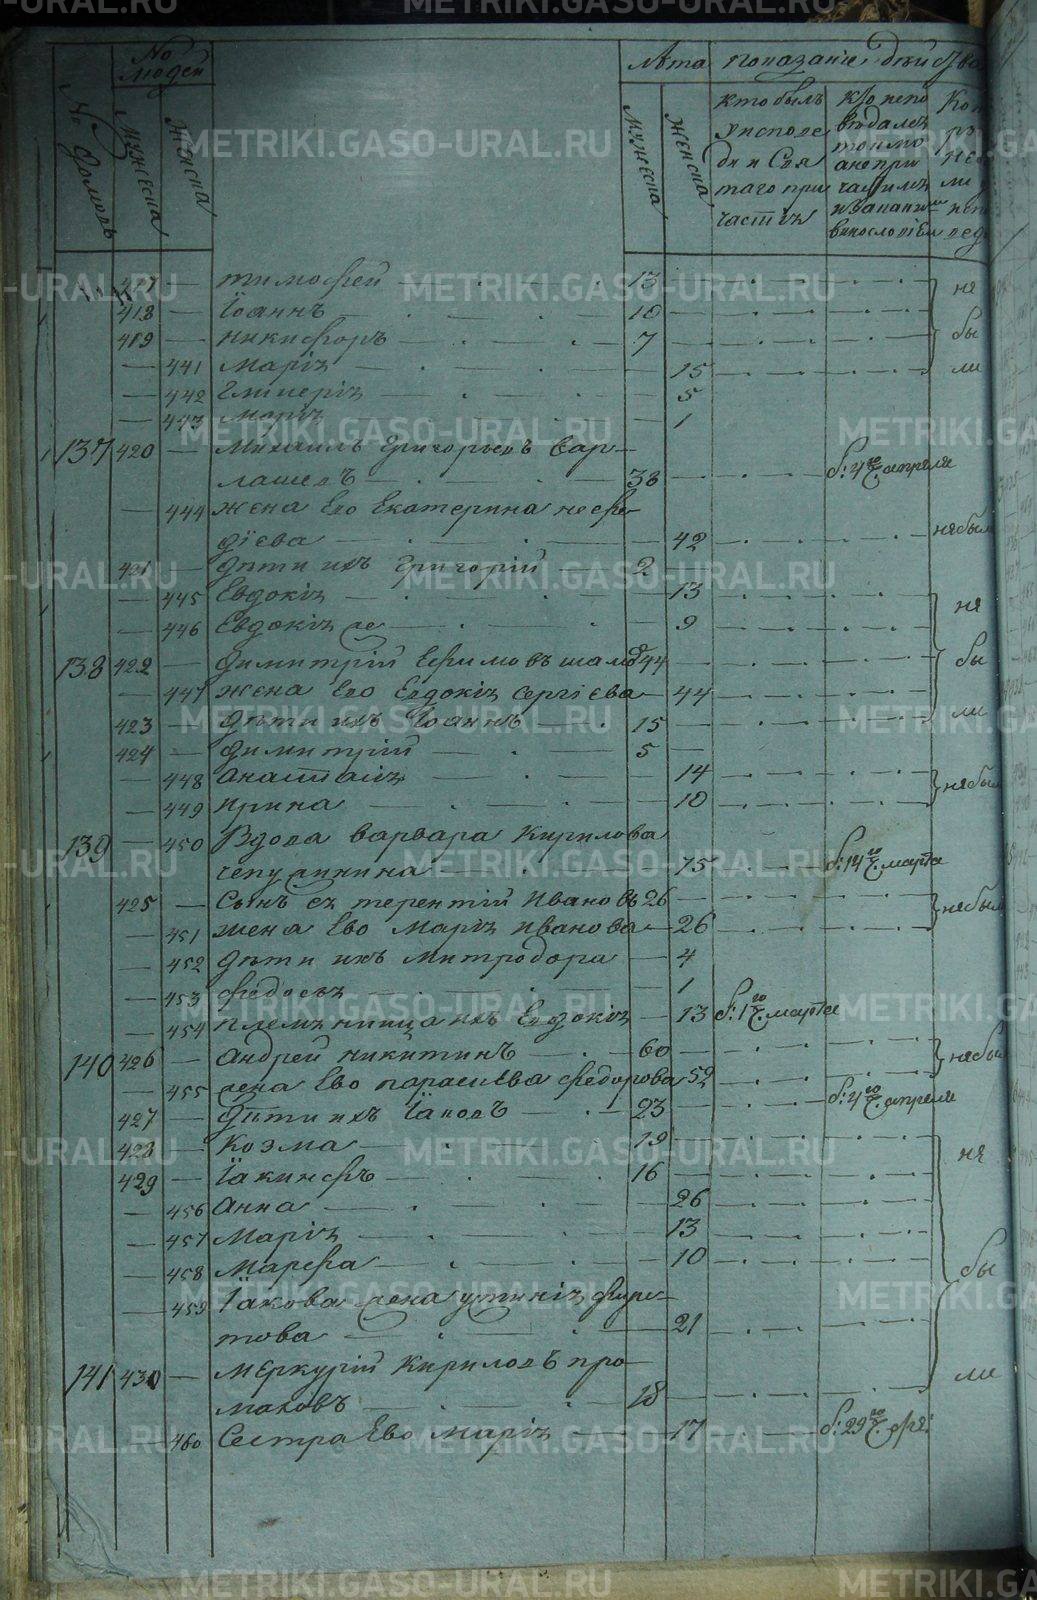 No людей
Лѣта показаніе дѣйства
No домовъ
Мужеска
Женска
Мужеска
Женска
кто былъ у исповеди и Святаго причастія
417 — тимофей 13
418 — Іоаннъ 10
419 — никифоръ 7
не бы ли
— 441 Марія 15
— 442 Гликерія 5
— 443 Марія 1
137 420 — Михаилъ Григорьевъ Варлашевъ 38 б: 4го ч. апреля
— 444 жена Ево Екатерина мефодіева 42 не был
421 — дѣти ихъ Григорій 2
— 445 Евдокія 13
— 446 Евдокія же 9
не бы ли
138 422 — димитрій Ефимовъ 44
— 447 жена Ево Евдокія сергіева 44
423 — дѣти ихъ Іоаннъ 15
424 — димитрій 5
— 448 Анастасія 14
— 449 ирина 10 не был
139 — 450 Вдова варвара Кирилова
75 б: 14го ч. марта
425 — Сынъ ея терентій Ивановъ 26
— 451 жена Ево Марія иванова 26 не был
— 452 дѣти ихъ митродора 4
— 453 федосья 1
— 454 племянница ихъ Евдокія 13 б: 1го ч. марта
140 426 — Андрей никитинъ 60
— 455 жена Ево парасиева федорова 52 не был
427 — дѣти ихъ Іаковъ 23 б: 4го ч. апреля
428 — Козма 19
429 — Іакинфъ 16
не бы ли
— 456 Анна 26
— 457 Марія 13
— 458 Марфа 10
— 459 Іакова жена
това 21
141 430 — меркурій кириловъ промаховъ 18
460 Сестра Ево марія 17 б: 29го ч. фев:
METRIKI.GASO-URAL.RU